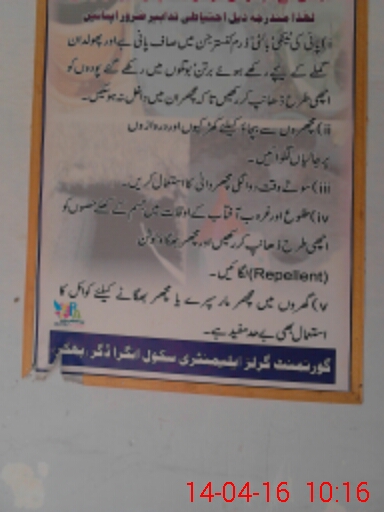 لہٰذا مندرجہ ذیل احتیاطی تدابیر ضرور اپنائیں
i) پانی کی ٹینکی، بالٹی، ڈرم، کنستر جن میں صاف پانی ہے اور پھولدان
گملے کے نیچے رکھے ہوئے برتن، بوتلوں میں رکھے گئے پودوں کو
اچھی طرح ڈھانپ کر رکھیں تاکہ مچھر ان میں داخل نہ ہو سکیں۔
ii) مچھروں سے بچاؤ کیلئے کھڑکیوں اور دروازوں
پر جالیاں لگوائیں۔
iii) سوتے وقت دوا لگی مچھر دانی کا استعمال کریں۔
iv) طلوع اور غروب آفتاب کے اوقات میں جسم کے کھلے حصوں کو
اچھی طرح ڈھانپ کر رکھیں اور مچھر بھگاؤ لوشن
(Repellent) لگائیں۔
v) گھروں میں مچھر مار سپرے یا مچھر بھگانے کیلئے کوائل کا
استعمال بھی بے حد مفید ہے۔
گورنمنٹ گرلز ایلیمنٹری سکول
14-04-16 10:16